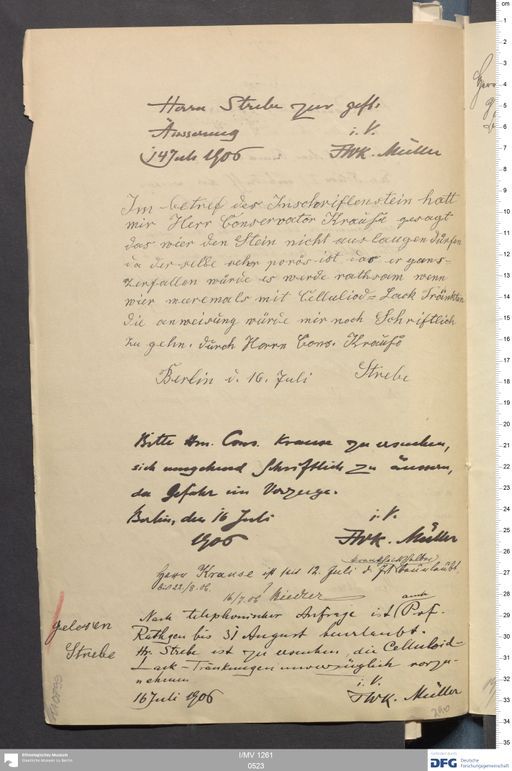 Herrn Strebe zur gefl.
Äusserung i. V.
14 Juli 1906 FWK. Müller
Im betref des Inschriftenstein hatt
mir Herr Conservator Krause gesagt
das wier den Stein nicht auslaugen dürfen
da derselbe sehr porös ist das er ganz
zerfallen würde es werde rathsam wenn
wier meremals mit Celluliod= Lack Tränkten
die anweisung würde mir noch Schriftlich
zu gehn. durch Herrn Cons. Krause
Berlin d. 16. Juli Strebe
Bitte Hrn. Cons. Krause zu ersuchen,
sich umgehend schriftlich zu äussern,
da Gefahr im Verzuge.
Berlin, den 16 Juli i. V.
1906 FWK. Müller
Herr Krause ist seit 12. Juli d. Js. beurlaubt.
bis 22/8.06.
16/7.06
Nach telephonischer Anfrage ist auch Prof.
Rathgen bis 31 August beurlaubt.
Hr. Strebe ist zu ersuchen, die Celluloid-
Lack-Tränkungen unverzüglich vorzu-
nehmen i. V.
16 Juli 1906 FWK. Müller
gelesen
Strebe
Ethnologisches Museum
Staatliche Museen zu Berlin
I/MV 1261
0523
DFG Deutsche
Forschungsgemeinschaft